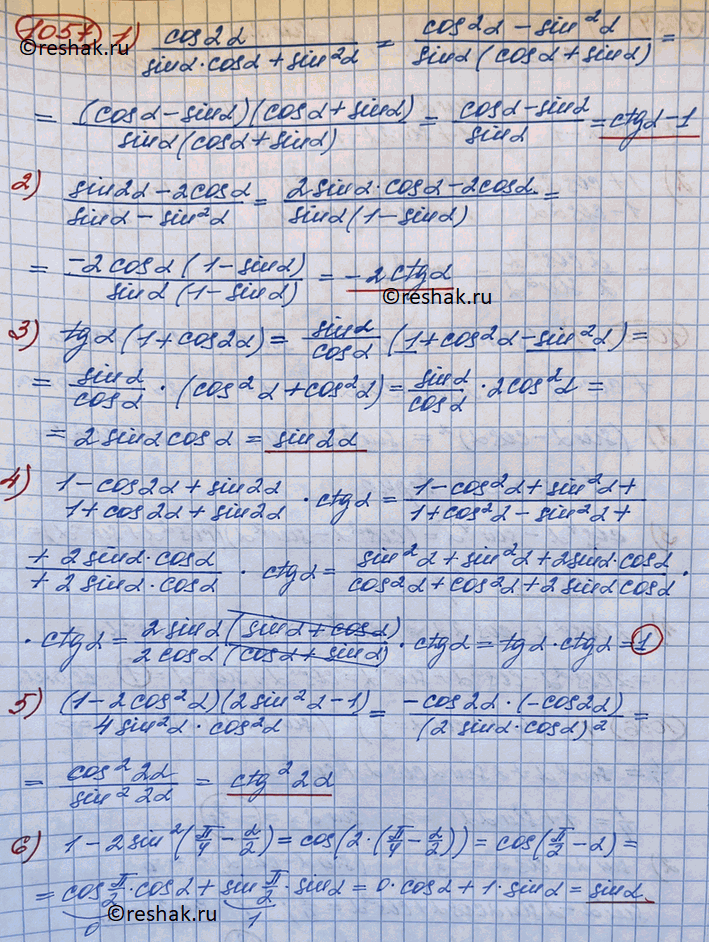 1057) 1) cos2α / (sinα·cosα + sin²α) = (cos²α − sin²α) / (sinα(cosα + sinα)) =
©reshak.ru
= (cosα − sinα)(cosα + sinα) / (sinα(cosα + sinα)) = (cosα − sinα) / sinα = ctgα − 1
2) (sin2α − 2cosα) / (sinα − sin²α) = (2sinα·cosα − 2cosα) / (sinα(1 − sinα)) =
= −2cosα(1 − sinα) / (sinα(1 − sinα)) = −2ctgα
©reshak.ru
3) tgα(1 + cos2α) = sinα/cosα (1 + cos²α − sin²α) =
= sinα/cosα · (cos²α + cos²α) = sinα/cosα · 2cos²α =
= 2sinαcosα = sin2α
4) (1 − cos2α + sin2α) / (1 + cos2α + sin2α) · ctgα = (1 − cos²α + sin²α +) / (1 + cos²α − sin²α +)
(+ 2sinα·cosα) / (+ 2sinα·cosα) · ctgα = (sin²α + sin²α + 2sinα·cosα) / (cos²α + cos²α + 2sinαcosα) ·
· ctgα = 2sinα(sinα + cosα) / (2cosα(cosα + sinα)) · ctgα = tgα·ctgα = 1
5) (1 − 2cos²α)(2sin²α − 1) / (4sin²α·cos²α) = −cos2α·(−cos2α) / (2sinα·cosα)² =
= cos²2α / sin²2α = ctg²2α
6) 1 − 2sin²(π/4 − α/2) = cos(2·(π/4 − α/2)) = cos(π/2 − α) =
= cos π/2 · cosα + sin π/2 · sinα = 0·cosα + 1·sinα = sinα.
0 1
©reshak.ru